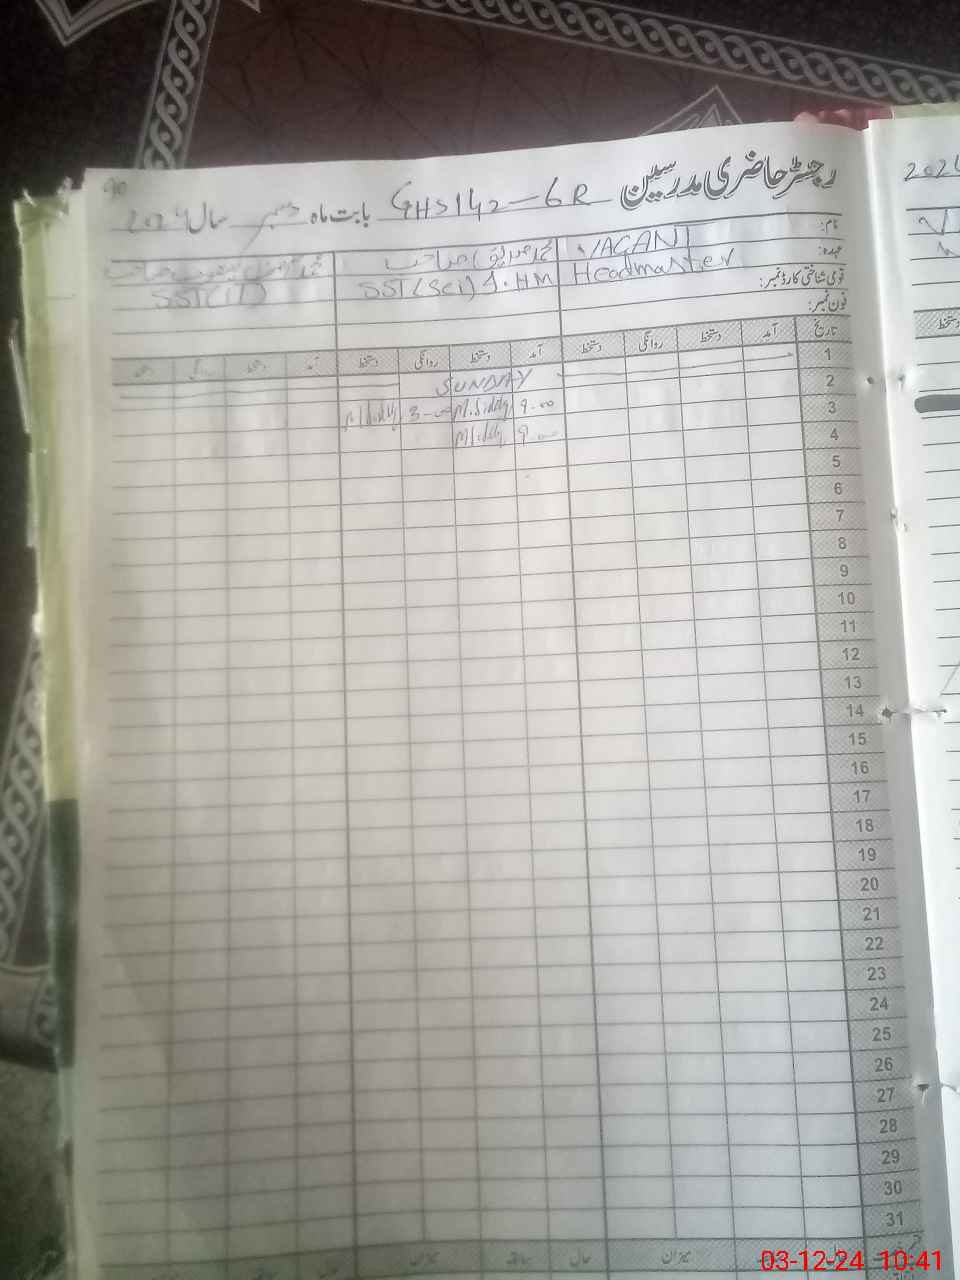 90
رجسٹر حاضری مدرسین GHS 142-6R بابت ماہ دسمبر سال 2024
2024
نام: VACANT محمد صدیق صاحب محمد صاحب
عہدہ: Headmaster SST(Sci) I.HM SST(IT)
قومی شناختی کارڈ نمبر:
فون نمبر:
تاریخ آمد دستخط روانگی دستخط آمد دستخط روانگی دستخط آمد دستخط روانگی دستخط
1 SUNDAY
2 9-00 M.Siddiq 3-00 M.Siddiq
3 9-00 M.Siddiq
4
5
6
7
8
9
10
11
12
13
14
15
16
17
18
19
20
21
22
23
24
25
26
27
28
29
30
31
حال میزان حال سابقہ میزان حال
03-12-24 10:41